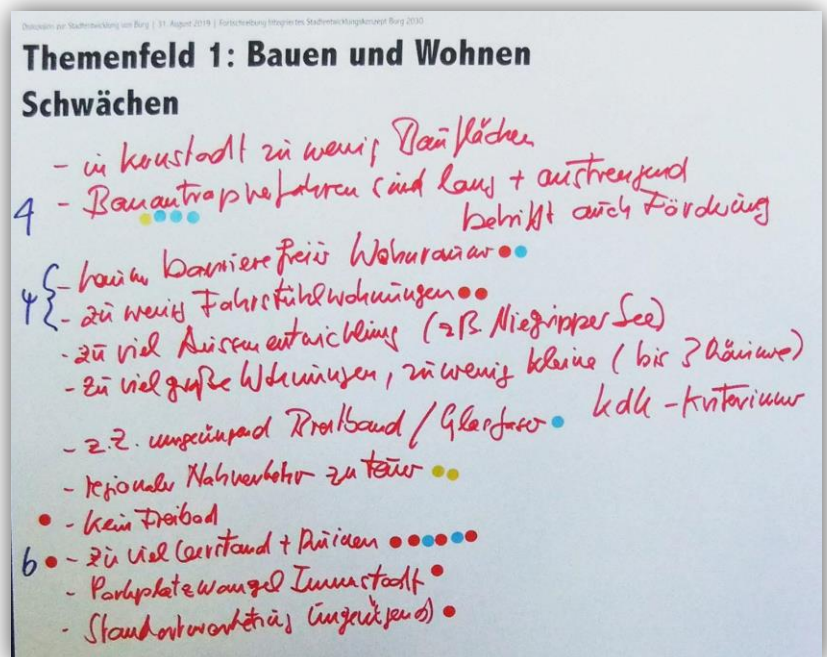 Diskussion zur Stadtentwicklung um Burg | 31. August 2019 | Fortschreibung Integriertes Stadtentwicklungskonzept Burg 2030
Themenfeld 1: Bauen und Wohnen
Schwächen
- in Kernstadt zu wenig Bauflächen
4 - Bauantragsverfahren sind lang + anstrengend
betrifft auch Förderung
4 { - kaum barrierefreier Wohnraum
- zu wenig Fahrstuhlwohnungen
- zu viel Aussenentwicklung (zB. Niegripper See)
- zu viel große Wohnungen, zu wenig kleine (bis 3 Räume)
KdU - Kriterium
- z.Z. ungenügend Breitband / Glasfaser
- regionaler Nahverkehr zu teuer
- kein Freibad
6 - zu viel Leerstand + Ruinen
- Parkplatzmangel Innenstadt
- Standortmarketing (ungenügend)